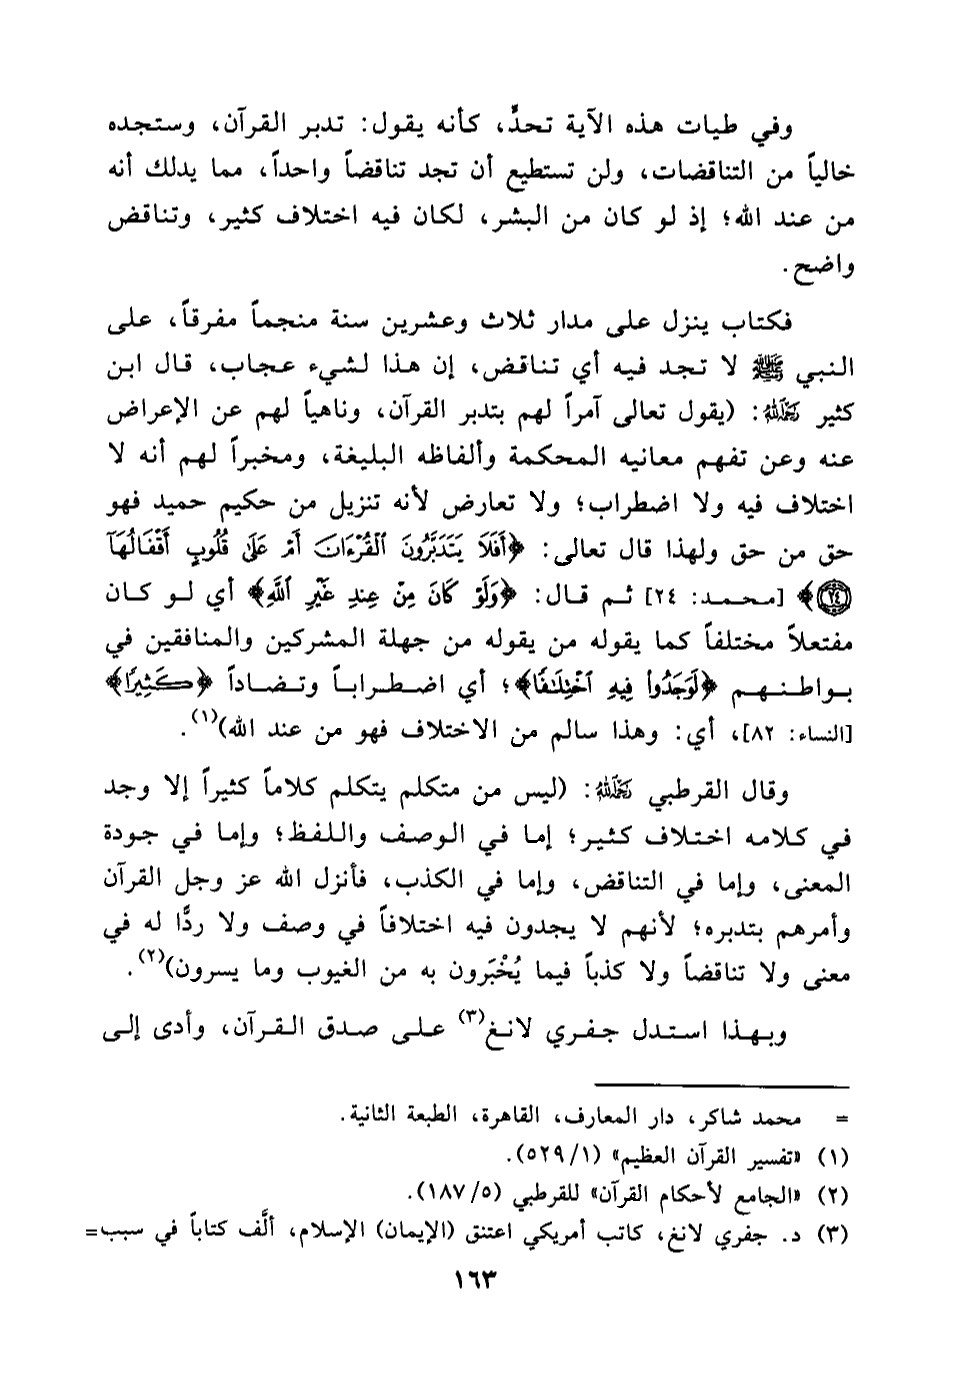 وفي طيات هذه الآية تحدٍّ، كأنه يقول: تدبر القرآن، وستجده
خالياً من التناقضات، ولن تستطيع أن تجد تناقضاً واحداً، مما يدلك أنه
من عند الله؛ إذ لو كان من البشر، لكان فيه اختلاف كثير، وتناقض
واضح.
فكتاب ينزل على مدار ثلاث وعشرين سنة منجماً مفرقاً، على
النبي ﷺ لا تجد فيه أي تناقض، إن هذا لشيء عجاب، قال ابن
كثير رَحِمَهُ اللهُ: (يقول تعالى آمراً لهم بتدبر القرآن، وناهياً لهم عن الإعراض
عنه وعن تفهم معانيه المحكمة وألفاظه البليغة، ومخبراً لهم أنه لا
اختلاف فيه ولا اضطراب؛ ولا تعارض لأنه تنزيل من حكيم حميد فهو
حق من حق ولهذا قال تعالى: ﴿أَفَلَا يَتَدَبَّرُونَ ٱلْقُرْءَانَ أَمْ عَلَىٰ قُلُوبٍ أَقْفَالُهَآ
(٢٤)﴾ [محمد: ٢٤] ثم قال: ﴿وَلَوْ كَانَ مِنْ عِندِ غَيْرِ ٱللَّهِ﴾ أي لو كان
مفتعلاً مختلفاً كما يقوله من يقوله من جهلة المشركين والمنافقين في
بواطنهم ﴿لَوَجَدُوا۟ فِيهِ ٱخْتِلَٰفًا﴾؛ أي اضطراباً وتضاداً ﴿كَثِيرًا﴾
[النساء: ٨٢]، أي: وهذا سالم من الاختلاف فهو من عند الله)(١).
وقال القرطبي رَحِمَهُ اللهُ: (ليس من متكلم يتكلم كلاماً كثيراً إلا وجد
في كلامه اختلاف كثير؛ إما في الوصف واللفظ؛ وإما في جودة
المعنى، وإما في التناقض، وإما في الكذب، فأنزل الله عز وجل القرآن
وأمرهم بتدبره؛ لأنهم لا يجدون فيه اختلافاً في وصف ولا ردًّا له في
معنى ولا تناقضاً ولا كذباً فيما يُخْبَرون به من الغيوب وما يسرون)(٢).
وبهذا استدل جفري لانغ(٣) على صدق القرآن، وأدى إلى
= محمد شاكر، دار المعارف، القاهرة، الطبعة الثانية.
(١) «تفسير القرآن العظيم» (١/ ٥٢٩).
(٢) «الجامع لأحكام القرآن» للقرطبي (٥/ ١٨٧).
(٣) د. جفري لانغ، كاتب أمريكي اعتنق (الإيمان) الإسلام، ألَّف كتاباً في سبب=
١٦٣